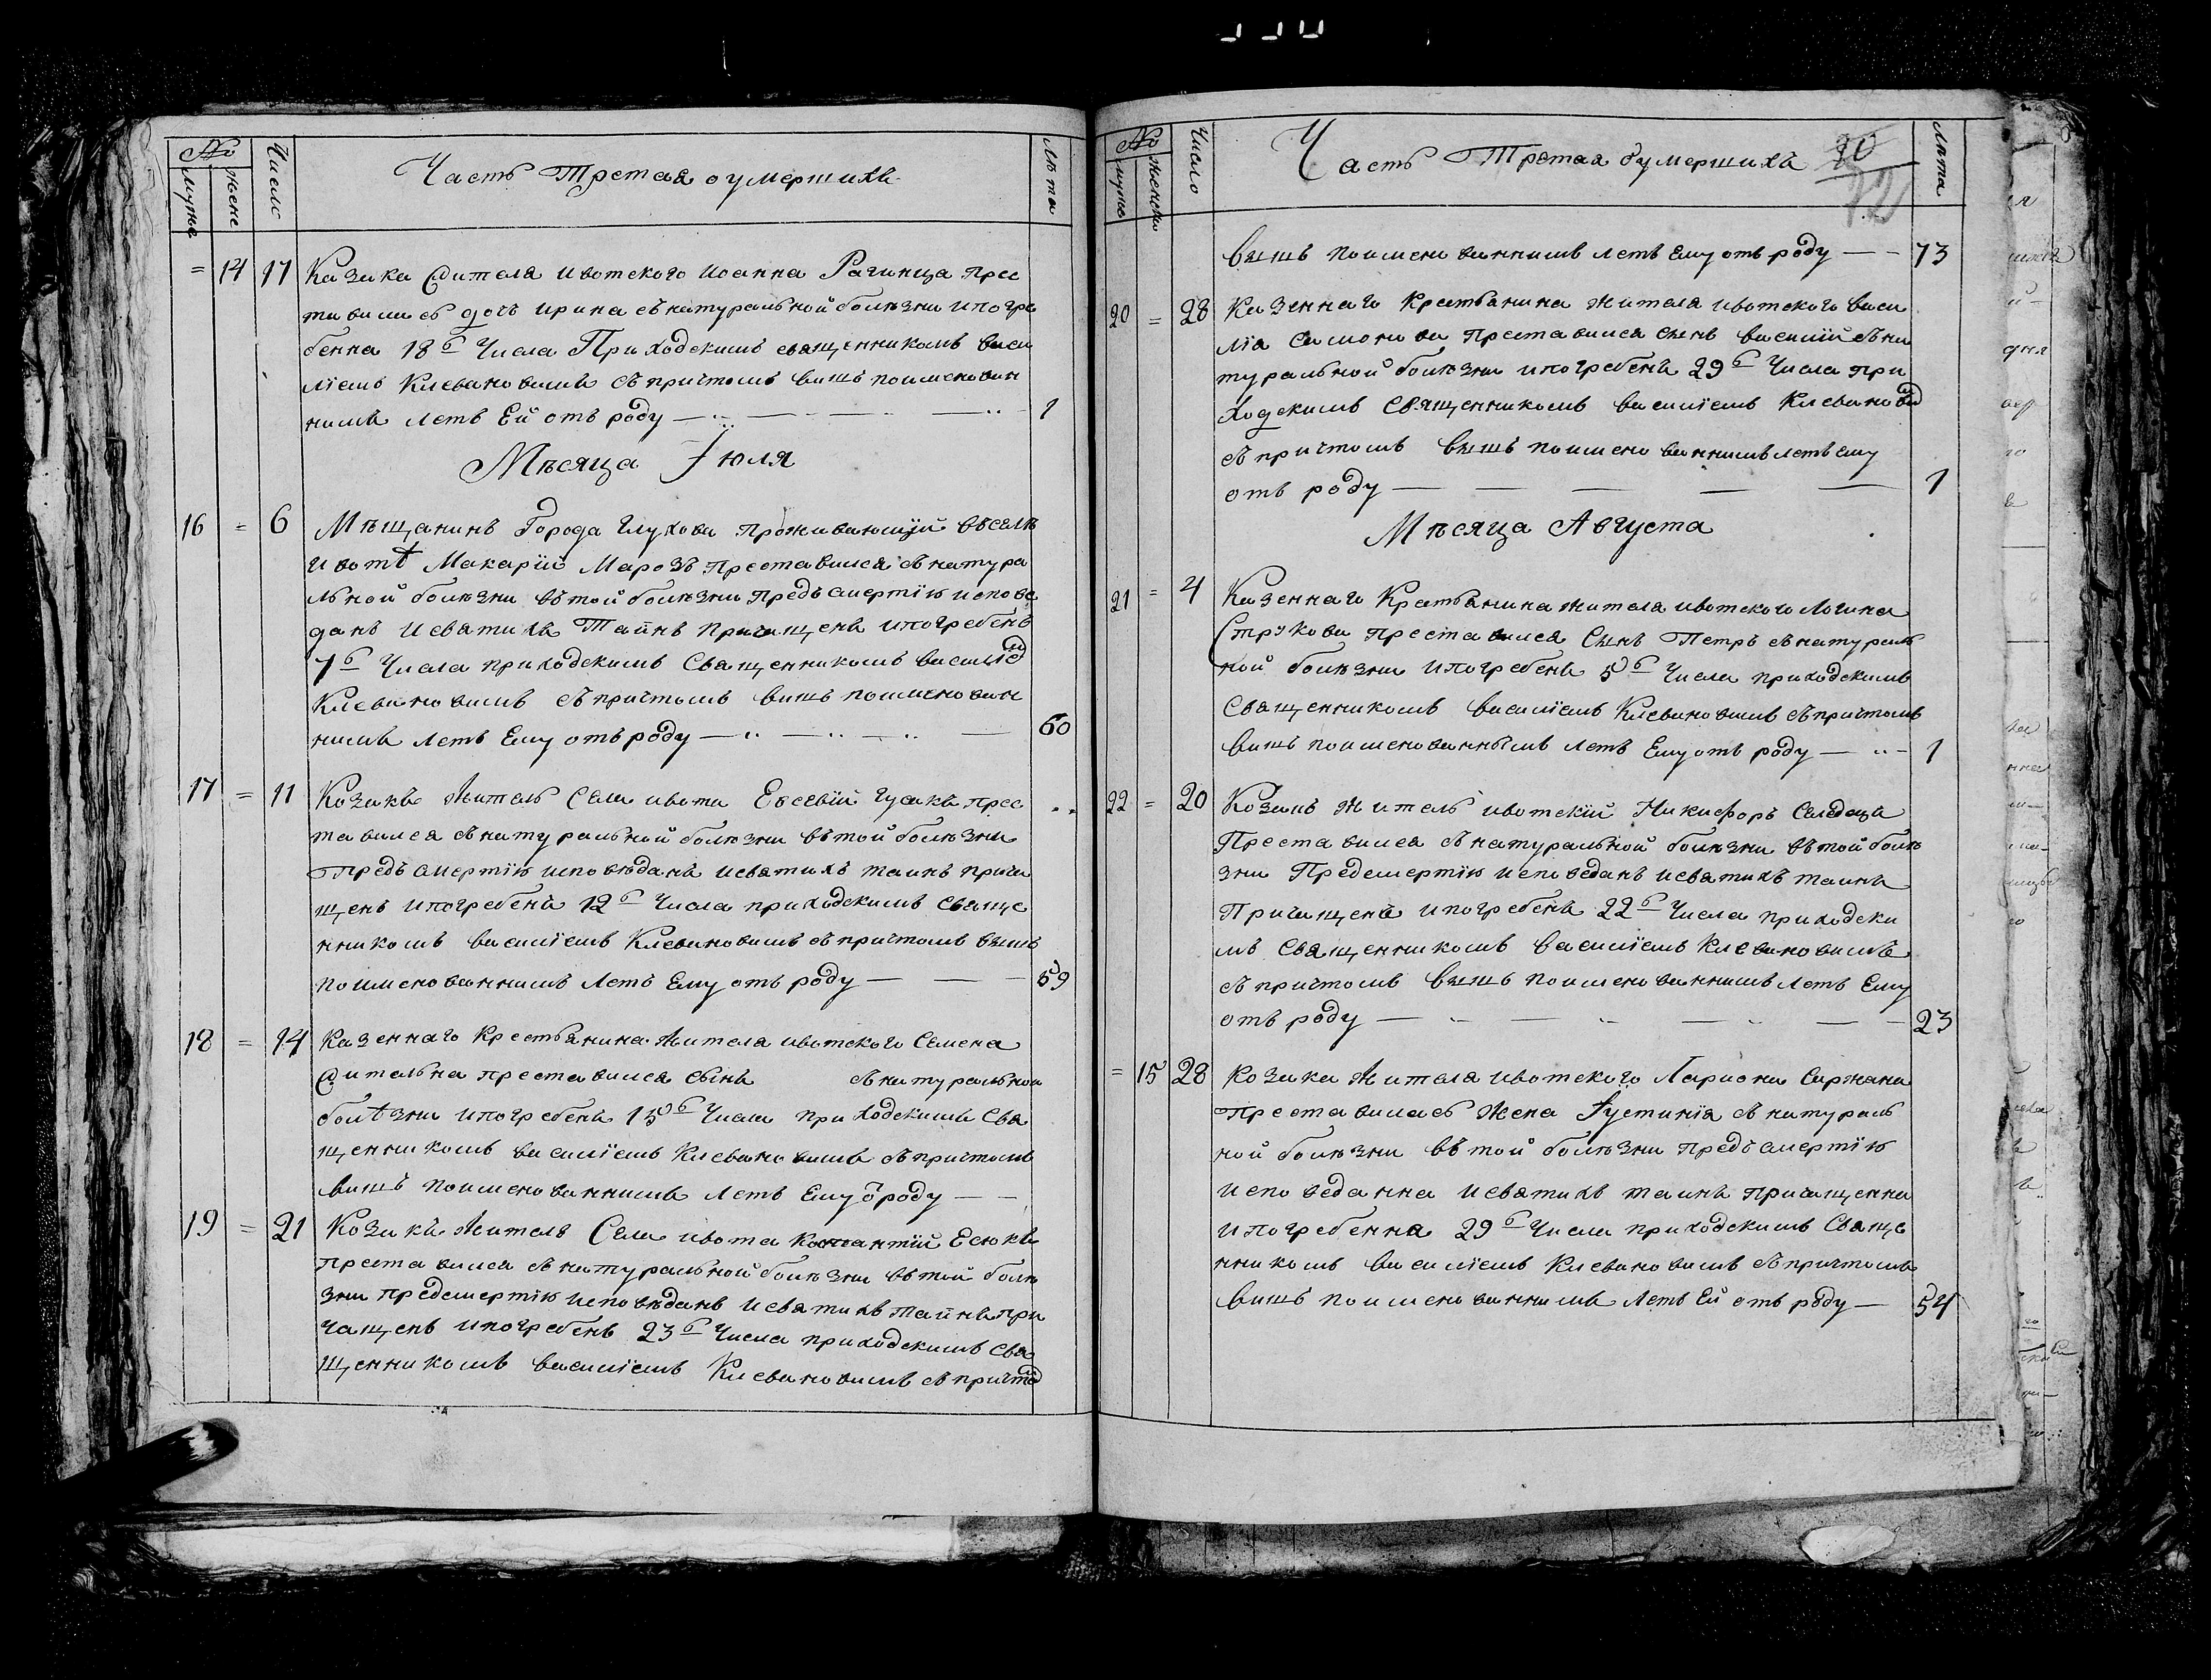 №
муже
жене
Число
Часть Третая о умерших
Лѣта
= 14 17 Казака жителя ивотского иоанна Рагинца прес
тавилась дочь ирина съ натуральной болѣзни и погре
бенна 18г Числа Приходским священником васи
лием Клевановим съ причтом виш поименован
ним Летъ Ей отъ роду 1
Мѣсяца Июля
16 = 6 Мѣщанинъ Города Глухова Проживающий въ селѣ
ивотѣ Макарий Марозъ преставился съ натура
льной болѣзни въ той болѣзни предъ смертию испове
данъ и святихъ Тайнъ причащенъ и погребенъ
7г Числа приходским Священником василие
Клевановим съ причтом виш поименован
ним Летъ Ему отъ роду 60
17 = 11 Козакъ Житель Села ивота Евсевий Гусакъ прес
тавился съ натуральной болѣзни въ той болѣзни
предъ смертию исповѣданъ и святихъ таинъ прича
щенъ и погребенъ 12г Числа приходским Свяще
нником василием Клевановим съ причтом выш
поименованним Летъ Ему отъ роду 59
18 = 14 Казеннаго Крестьянина Жителя ивотского Семена
преставился сынъ съ натуральной
болѣзни и погребенъ 15г Числа приходским Свя
щенником василием Клевановим съ причтом
виш поименованним Летъ Ему о роду
19 = 21 Козакъ Житель Села ивота Есюкъ
преставился съ натуральной болѣзни въ той болѣ
зни предсмертию исповѣданъ и святихъ тайнъ при
чащенъ и погребенъ 23г Числа приходским Свя
щенником василием Клевановим съ причто
№
муже
женск
Число
Часть Третая о умерших
30
32
Лѣта
выш поименованним летъ Ему отъ роду 73
20 = 28 Казеннаго Крестьянина жителя ивотского васи
лия Самонова преставился сынъ василий съ на
туральной болѣзни и погребенъ 29г Числа при
ходским Священником василием Клеванов
съ причтом выш поименованним летъ ему
отъ роду 1
Мѣсяца Августа
21 = 4 Казеннаго Крестьянина жителя ивотского Логина
Струкова преставился Сынъ Петръ съ натураль
ной болѣзни и погребенъ 5г Числа приходским
Священником василием Клевановим съ причтом
виш поименованным летъ Ему отъ роду 1
22 = 20 Козакъ Житель ивотский Никифоръ
Преставился съ натуральной болѣзни въ той болѣ
зни Предсмертию исповеданъ и святихъ таинъ
Причащенъ и погребенъ 22г Числа приходски
мъ Священником василием Клевановим
съ причтом выш поименованним летъ Ему
отъ роду 23
= 15 28 Козака Жителя ивотского Лариона Саржана
преставилась Жена Иустиния съ натураль
ной болѣзни въ той болѣзни предъ смертию
исповеданна и святихъ таинъ причащенна
и погребенна 29г Числа приходским Свяще
нником василием Клевановим съ причтом
виш поименованним летъ Ей отъ роду 54